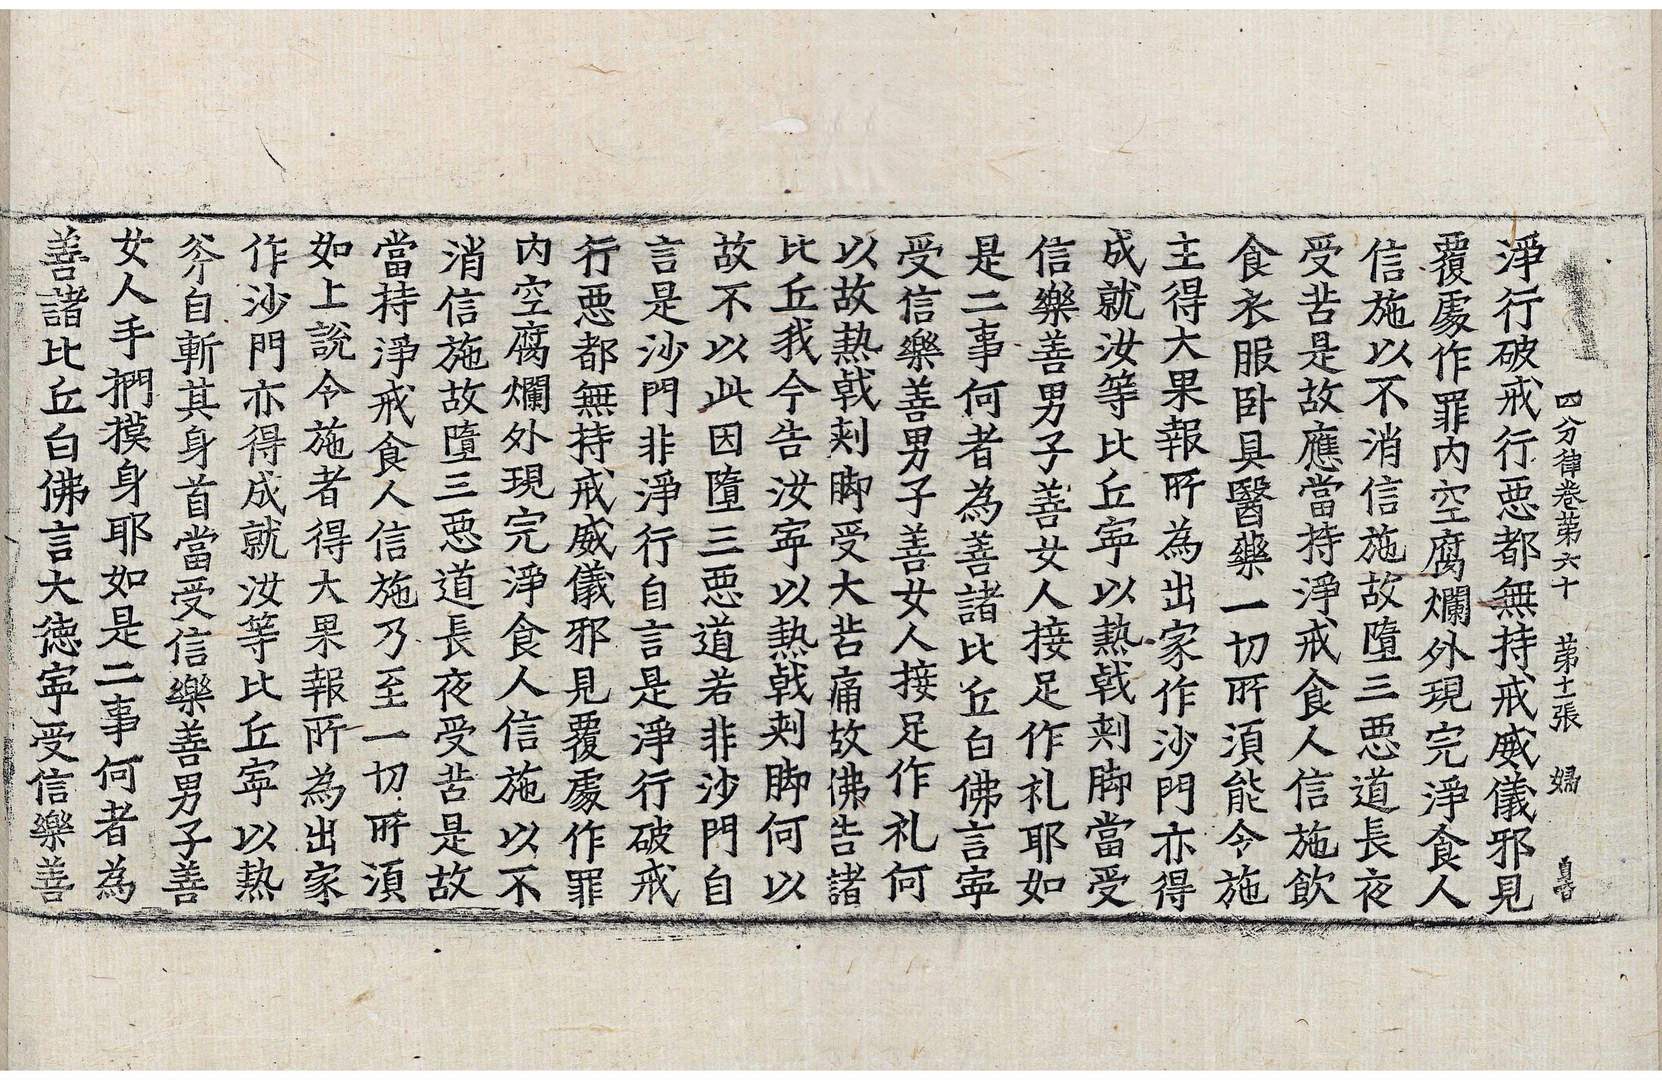 四分律卷第六十 第十一張 婦
淨行破戒行惡都無持戒威儀邪見
覆處作罪內空腐爛外現完淨食人
信施以不消信施故墮三惡道長夜
受苦是故應當持淨戒食人信施飲
食衣服卧具醫藥一切所須能令施
主得大果報所為出家作沙門亦得
成就汝等比丘寧以熱戟刾脚當受
信樂善男子善女人接足作礼耶如
是二事何者為善諸比丘白佛言寧
受信樂善男子善女人接足作礼何
以故熱戟刾脚受大苦痛故佛告諸
比丘我今告汝寧以熱戟刾脚何以
故不以此因墮三惡道若非沙門自
言是沙門非淨行自言是淨行破戒
行惡都無持戒威儀邪見覆處作罪
內空腐爛外現完淨食人信施以不
消信施故墮三惡道長夜受苦是故
當持淨戒食人信施乃至一切所須
如上說令施者得大果報所為出家
作沙門亦得成就汝等比丘寧以熱
斧自斬其身首當受信樂善男子善
女人手捫摸身耶如是二事何者為
善諸比丘白佛言大德寧受信樂善